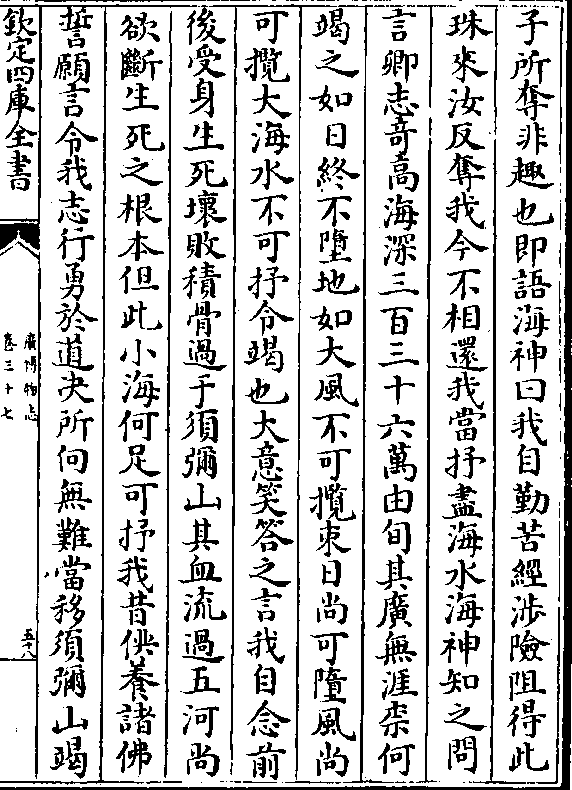 子所奪非趣也即語海神曰我自勤苦經涉險阻得此
珠來汝反奪我今不相還我當抒盡海水海神知之問
言卿志竒高海深三百三十六萬由旬其廣無涯柰何
竭之如日終不墮地如大風不可攬束日尚可墮風尚
可攬大海水不可抒令竭也大意笑答之言我自念前
後受身生死壞敗積骨過于須彌山其血流過五河尚
欲斷生死之根本但此小海何足可抒我昔供養諸佛
誓願言令我志行勇於道决所向無難當移須彌山竭
欽定四庫全書
廣博物志
卷三十七
五十八